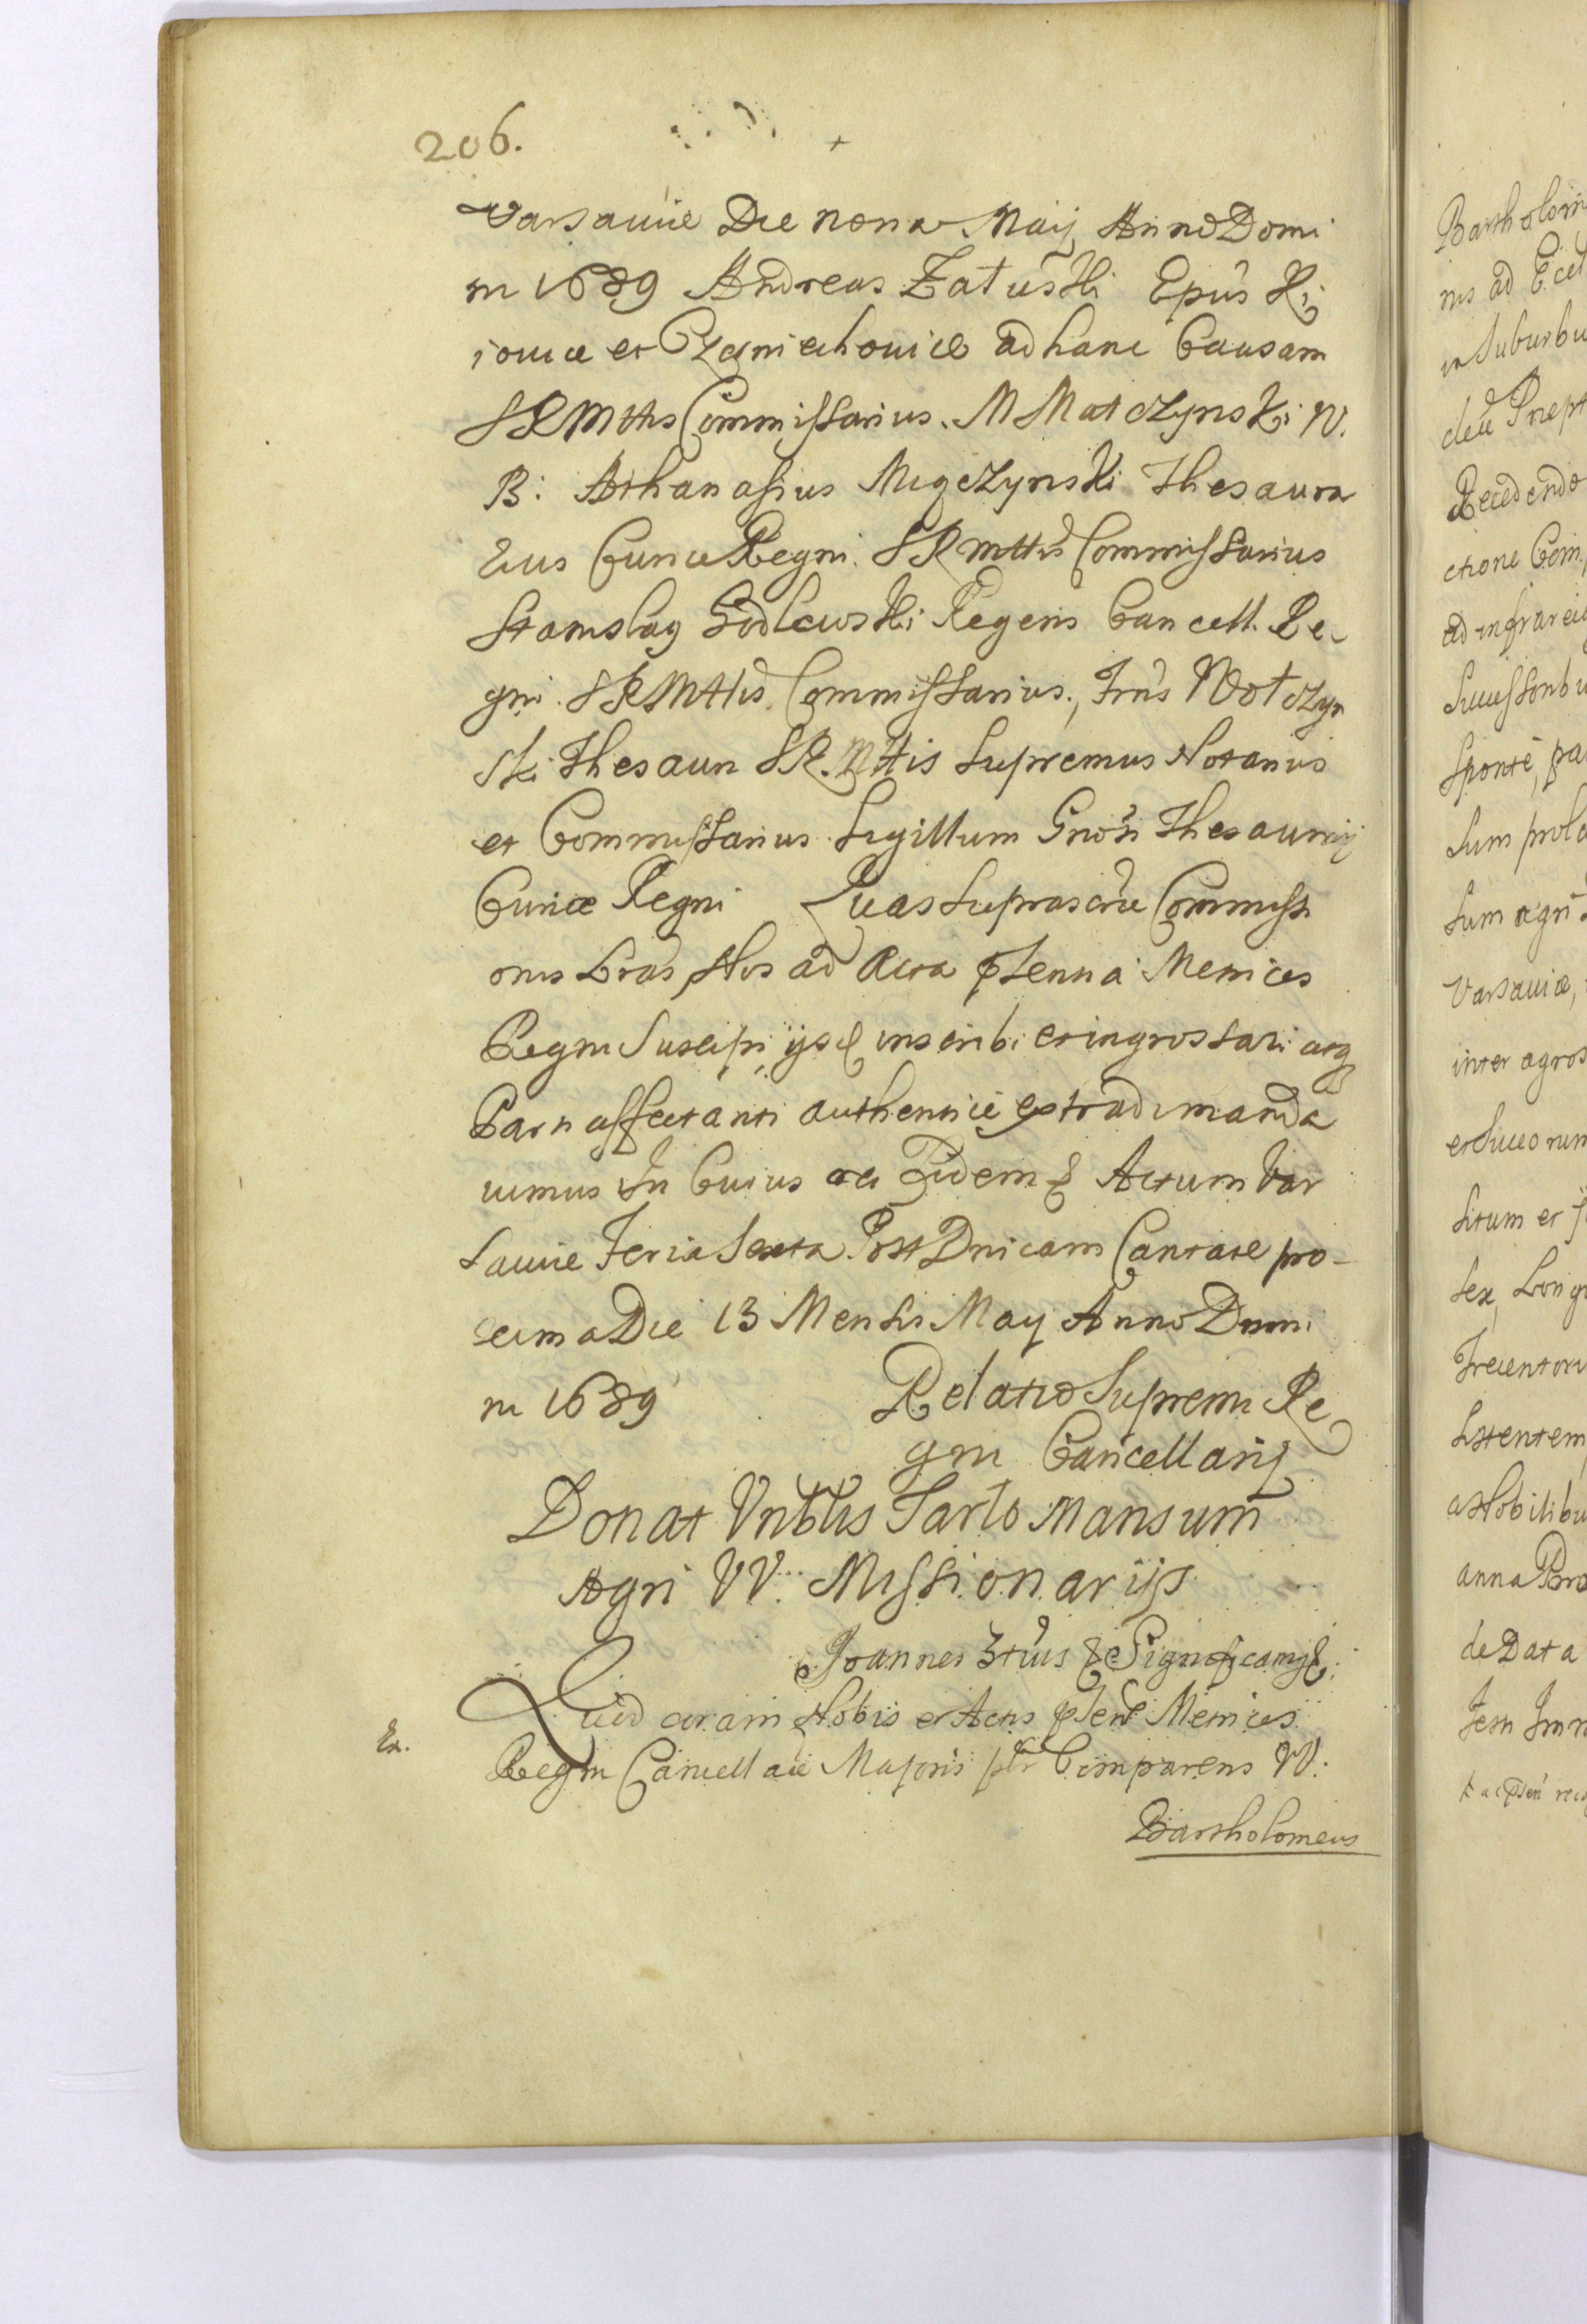 206.
Varsaviæ Die nona Maij Anno Domi
ni 1689 Andreas Załuski Epus Ki
ioviæ et Czerniechoviæ ad hanc Causam
SRMttis Commissarius. M Matczynski W.
R: Athanasius Miączynski Thesaura
rius Curiæ Regni. SRMttis Commissarius
Stanislaus Godlewski Regens Cancell. Re-
gni. SRMttis Commissarius., Frus Wołczyn
ski Thesauri SR.Mttis Supremus Notarius
et Commissarius Sigillum Gnosi Thesaurarij
Curiæ Regni Quas suprascrae Commissi
onis Lras Nos ad Acta pñtia Metrices
Regni Suscipi, ijsq inscribi et ingrossari atq
Parti affectanti authentice extradi manda
vimus In Cuius rei Fidem & Actum Var
saviæ Feria Sexta Post Dnicam Cantate pro-
xima Die 13 Mensis Maij Anno Domi
ni 1689 Relatio Supremi Re
gni Cancellarij
Donat Vrblis Tarło Mansum
Agri VV. Missionarijs
Joannes 3tius & Significamus &
Ex.
Quid coram Nobis et Actis pñtibs Metrices
Regni Cancellariæ Majoris pltr Comparens W.
Bartholomeus
Bartholom
nis ad Eccl
in Suburbi
Recedendo
ctione Com.
ad infrarei
Successorib
Sponte, pa
sum prola
sum agri
Varsaviæ,
inter agros
et Succorum
situm et
sex, Long
Trecentor
sistentem
a Nobilibu
anna
de Data